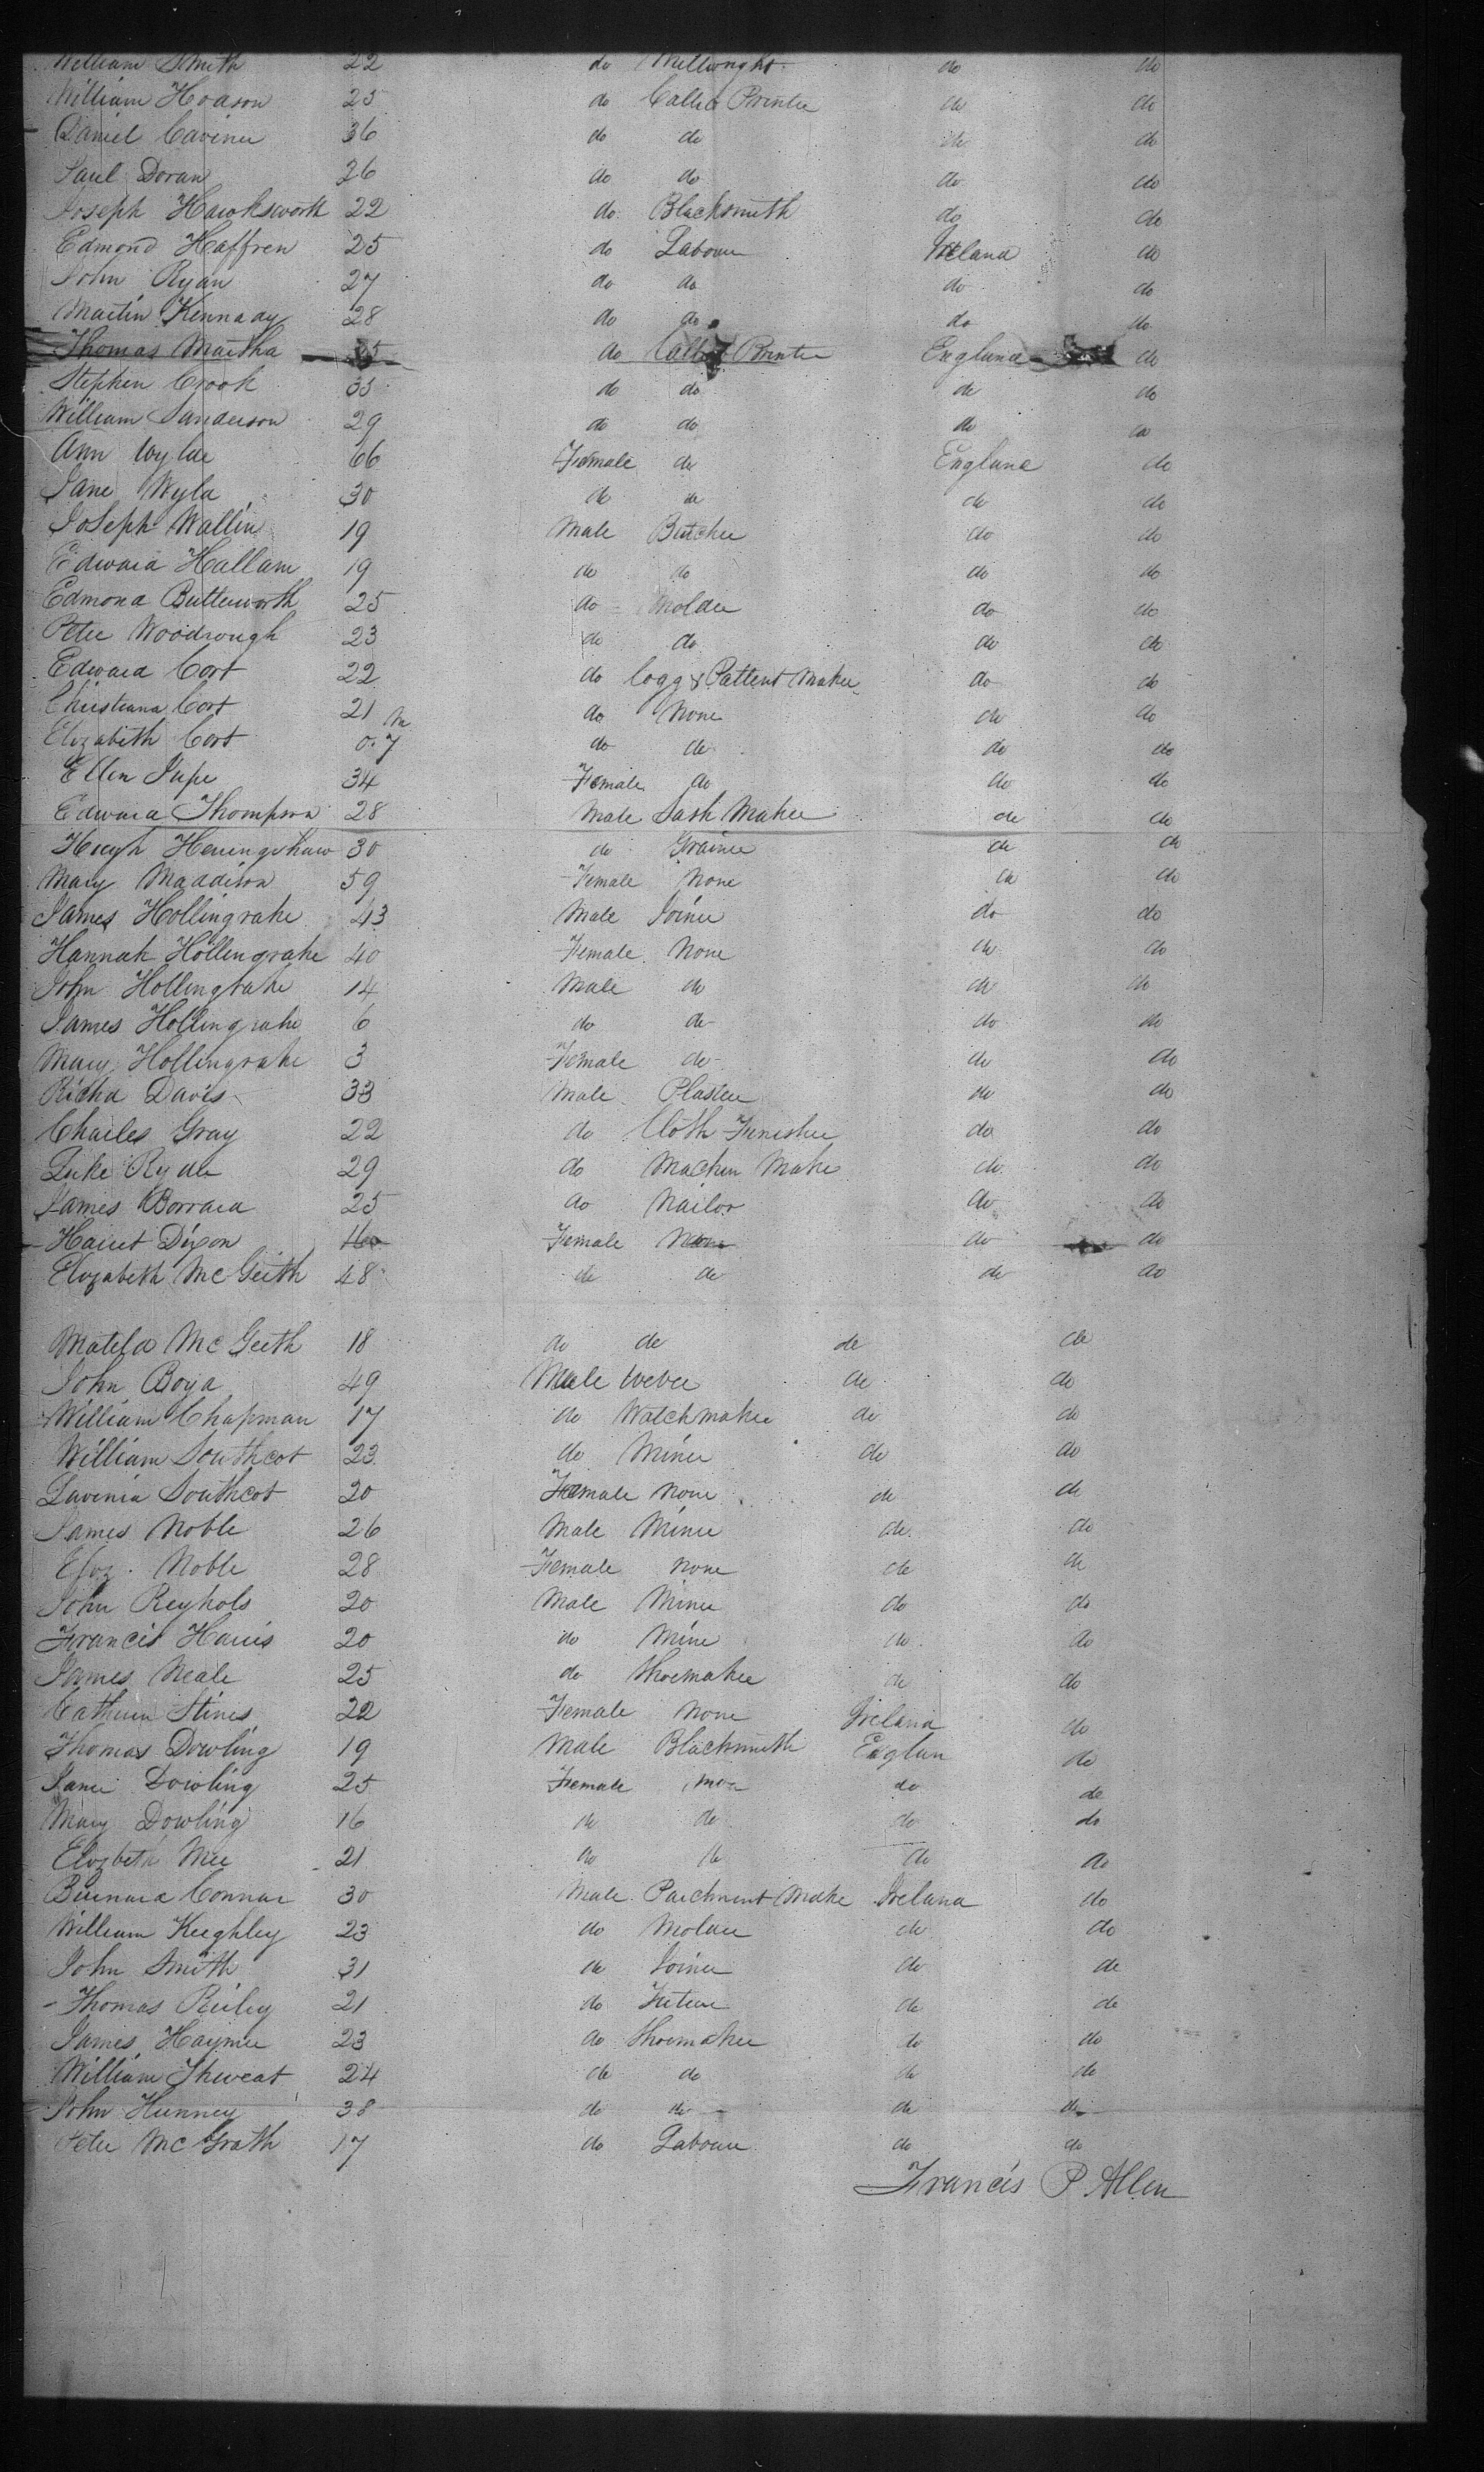 William Smith 22 do Millwright do do
William Hodson 25 do Calico Printer do do
Daniel Caviner 36 do do do do
Paul Doran 26 do do do do
Joseph Hawksworth 22 do Blacksmith do do
Edmond Haffren 25 do Labour Ireland do
John Ryan 27 do do do do
Martin Kennady 28 do do do do
Thomas Martha 25 do Calico Printer England do
Stephen Crook 35 do do do do
William Sanderson 29 do do do do
Ann Wylde 66 Female do England do
Jane Wyld 30 do do do do
Joseph Wallin 19 Male Butcher do do
Edward Hallam 19 do do do do
Edmond Butterworth 25 do Molder do do
Peter Woodrough 23 do do do do
Edward Cort 22 do Cogg & Pattent Maker do do
Christiana Cort 21 do None do do
Elizabeth Cort 0.7 m do do do do
Ellen Jupe 34 Female do do do
Edward Thompson 28 Male Sash Maker do do
Hugh Herringshaw 30 do Grainer do do
Mary Maddison 59 Female None do do
James Hollingrake 43 Male Joiner do do
Hannah Hollingrake 40 Female None do do
John Hollingrake 14 Male do do do
James Hollingrake 6 do do do do
Mary Hollingrake 3 Female do do do
Richd Davis 33 Male Plaster do do
Charles Gray 22 do Cloth Finisher do do
Luke Ryder 29 do Machin Make do do
James Borrard 25 do Nailor do do
Hariet Dixon 16 Female None do do
Elizabeth McGeith 48 do do do do
Matelda McGeeth 18 do do do do
John Boyd 49 Male Weber do do
William Chapman 17 do Watchmaker do do
William Southcot 23 do Miner do do
Lavinia Southcot 20 Female None do do
James Noble 26 Male Miner do do
Eloz. Noble 28 Female None do do
John Reynols 20 Male Miner do do
Francis Harris 20 do Mine do do
James Neale 25 do Shoemaker do do
Catherin Stines 22 Female None Ireland do
Thomas Dowling 19 Male Blacksmith Englan do
Jane Dowling 25 Female do do
Mary Dowling 16 do do do do
Elozbeth Mee 21 do do do do
Bernard Connar 30 Male Parchment Make Ireland do
William Keighley 23 do Molder do do
John Smith 31 do Joiner do do
Thomas Reiley 21 do do do
James Haymer 23 do Shoemaker do do
William Thweat 24 do do do do
John Hunney 38 do do do do
Peter McGrath 17 do Labour do do
Francis P Allen